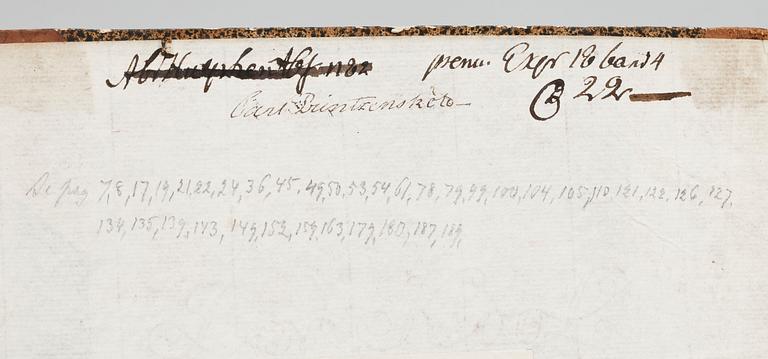 prenu. Expr 18 band 4
22
Carl Printzensköld
Se pag 7,8,17,19,21,22,24,36,45,49,50,53,54,61,78,79,99,100,104,105,110,121,122,126,127,
134,135,139,143,149,152,159,163,179,180,187,189,